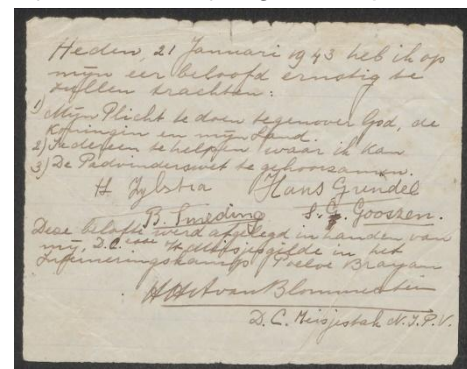 Heden, 21 Januari 1943 heb ik op
mijn eer beloofd ernstig te
zullen trachten:
1) Mijn Plicht te doen tegenover God, de
Koningin en mijn Land.
2) Iedereen te helpen waar ik kan.
3) De Padvinderswet te gehoorzamen.
H Zylstra Hans Grindel
B. Smeding S. C. Gooszen.
Deze belofte werd afgelegd in handen van
mij, D.C. in het
Interneringskamp Poeloe Brayan
van Blommestein
D. C. Meisjestak N.I.P.V.